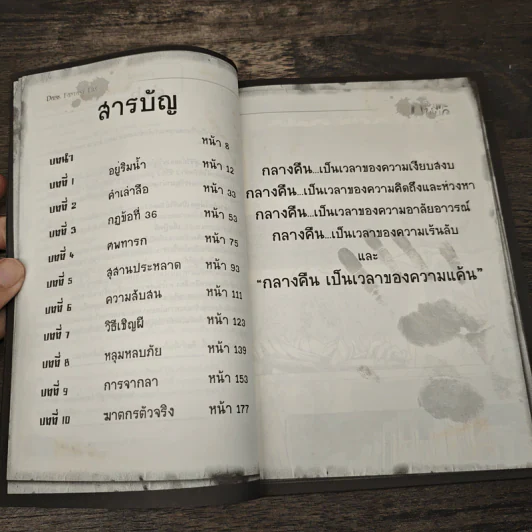 สารบัญ
บทนำ หน้า 8
บทที่ 1 อยู่ริมน้ำ หน้า 12
บทที่ 2 คำเล่าลือ หน้า 33
บทที่ 3 กฎข้อที่ 36 หน้า 53
บทที่ 4 ศพทารก หน้า 75
บทที่ 5 สุสานประหลาด หน้า 93
บทที่ 6 ความสับสน หน้า 111
บทที่ 7 วิธีเชิญผี หน้า 123
บทที่ 8 หลุมหลบภัย หน้า 139
บทที่ 9 การจากลา หน้า 153
บทที่ 10 ฆาตกรตัวจริง หน้า 177
กลางคืน...เป็นเวลาของความเงียบสงบ
กลางคืน...เป็นเวลาของความคิดถึงและห่วงหา
กลางคืน...เป็นเวลาของความอาลัยอาวรณ์
กลางคืน...เป็นเวลาของความเร้นลับ
และ
“กลางคืน เป็นเวลาของความแค้น”